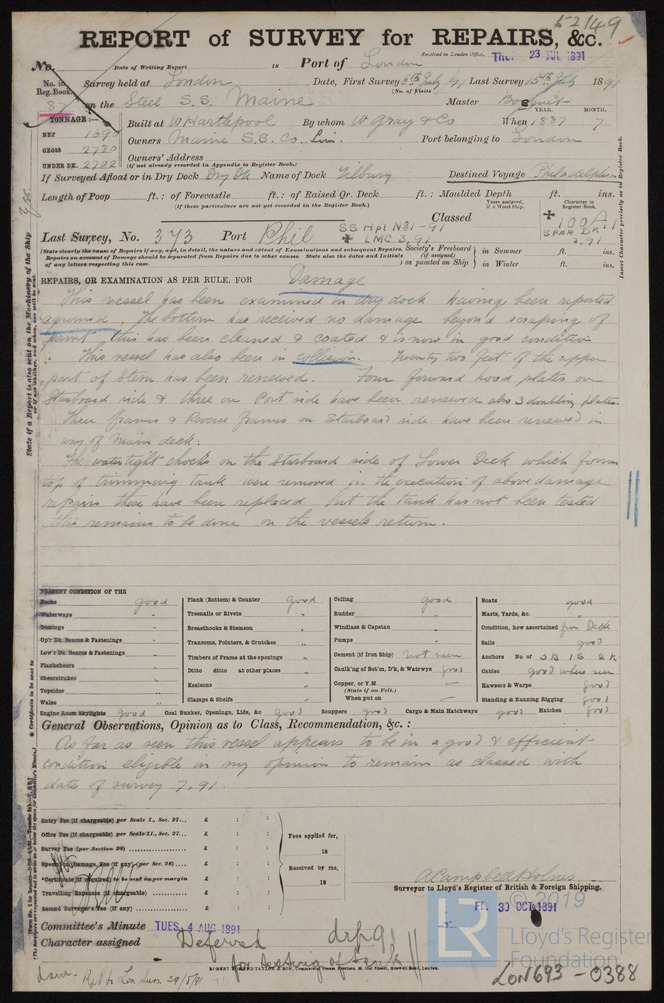 52149
REPORT of SURVEY for REPAIRS, &c.
Received in London Office, THUR. 23 JUL 1891
No. Date of Writing Report 18 Port of London
No. in Reg. Book. Survey held at London Date, First Survey 5th July /91 Last Survey 15th July 1891
(No. of Visits )
87 on the Steel S.S. Maine Master
TONNAGE:— YEAR. MONTH.
NET 1690 Built at W Hartlepool By whom W. Gray & Co When 1887 7
GROSS 2780 Owners Maine S.S. Co. Lim. Port belonging to London
UNDER DK. 2722 Owners' Address
(if not already recorded in Appendix to Register Book.)
If Surveyed Afloat or in Dry Dock Dry Dk Name of Dock Tilbury Destined Voyage Philadelphia
Length of Poop ft.: of Forecastle ft.: of Raised Qr. Deck ft.: Moulded Depth ft. ins.
(If these particulars are not yet recorded in the Register Book.)
Years assigned, if a Wood Ship. Character in Register Book.
Classed ✠ 100A1
SPAR DK
3.91
Last Survey, No. 373 Port Phil SS Hpl No1-91
✠ LMC 3.91
Society's Freeboard (if assigned) as painted on Ship } in Summer ft. ins.
in Winter ft. ins.
REPAIRS, OR EXAMINATION AS PER RULE, FOR Damage
This vessel has been examined in dry dock having been reported
aground. The bottom has received no damage beyond scraping of
paint, this has been cleaned & coated & is now in good condition
This vessel has also been in collision. Twenty two feet of the upper
part of Stem has been renewed. Four forward hood plates on
Starboard side & three on Port side have been renewed also 3 doubling plates.
Three frames & reverse frames on Starboard side have been renewed in
way of Main deck.
The watertight chocks on the Starboard side of Lower Deck which forms
top of trimming tank were removed in the execution of above damage
repairs these have been replaced but the tank has not been tested
this remains to be done on the vessels return.
PRESENT CONDITION OF THE
Decks good
Waterways "
Coamings "
Up'r Dk. Beams & Fastenings "
Low'r Dk. Beams & Fastenings "
Planksheers
Sheerstrakes
Topsides
Wales
Plank (Bottom) & Counter good
Treenails or Rivets "
Breasthooks & Stemson "
Transoms, Pointers, & Crutches "
Timbers of Frame at the openings "
Ditto ditto at other places "
Keelsons "
Clamps & Shelfs
Ceiling good
Rudder "
Windlass & Capstan "
Pumps "
Cement (if Iron Ship) not seen
Caulk'ng of Bot'm, D'k, & Watrwys good
Copper, or Y.M. –
(State if on Felt.)
When put on
Boats good
Masts, Yards, &c. "
Condition, how ascertained from Deck
Sails good
Anchors No. of 3 B 1 S 2 K
Cables good where seen
Hawsers & Warps good
Standing & Running Rigging good
Engine Room Skylights good Coal Bunker, Openings, Lids, &c good Scuppers good Cargo & Main Hatchways good Hatches good
General Observations, Opinion as to Class, Recommendation, &c.:
As far as seen this vessel appears to be in a good & efficient
condition eligible in my opinion to remain as classed with
date of survey 7.91.
Entry Fee (if chargeable) per Scale I., Sec. 27... £ : :
Office Fee (if chargeable) per Scale II., Sec. 27... £ : :
Survey Fee (per Section 28) £ : :
Special or Damage Fee (if any) (per Sec. 28) £ : :
*Certificate (if required) to be sent as per margin £ : :
Travelling Expenses (if chargeable) £ : :
Second Surveyor's Fee (if any) £ : :
Fees applied for,
18
Received by me,
18
A Campbell Holms
Surveyor to Lloyd's Register of British & Foreign Shipping.
Committee's Minute TUES. 4 AUG 1891 FRI. 30 OCT 1891
Character assigned Deferred drp 91
for testing of tank
© 2019
LR
Lloyd's Register
Foundation
LON693-0388